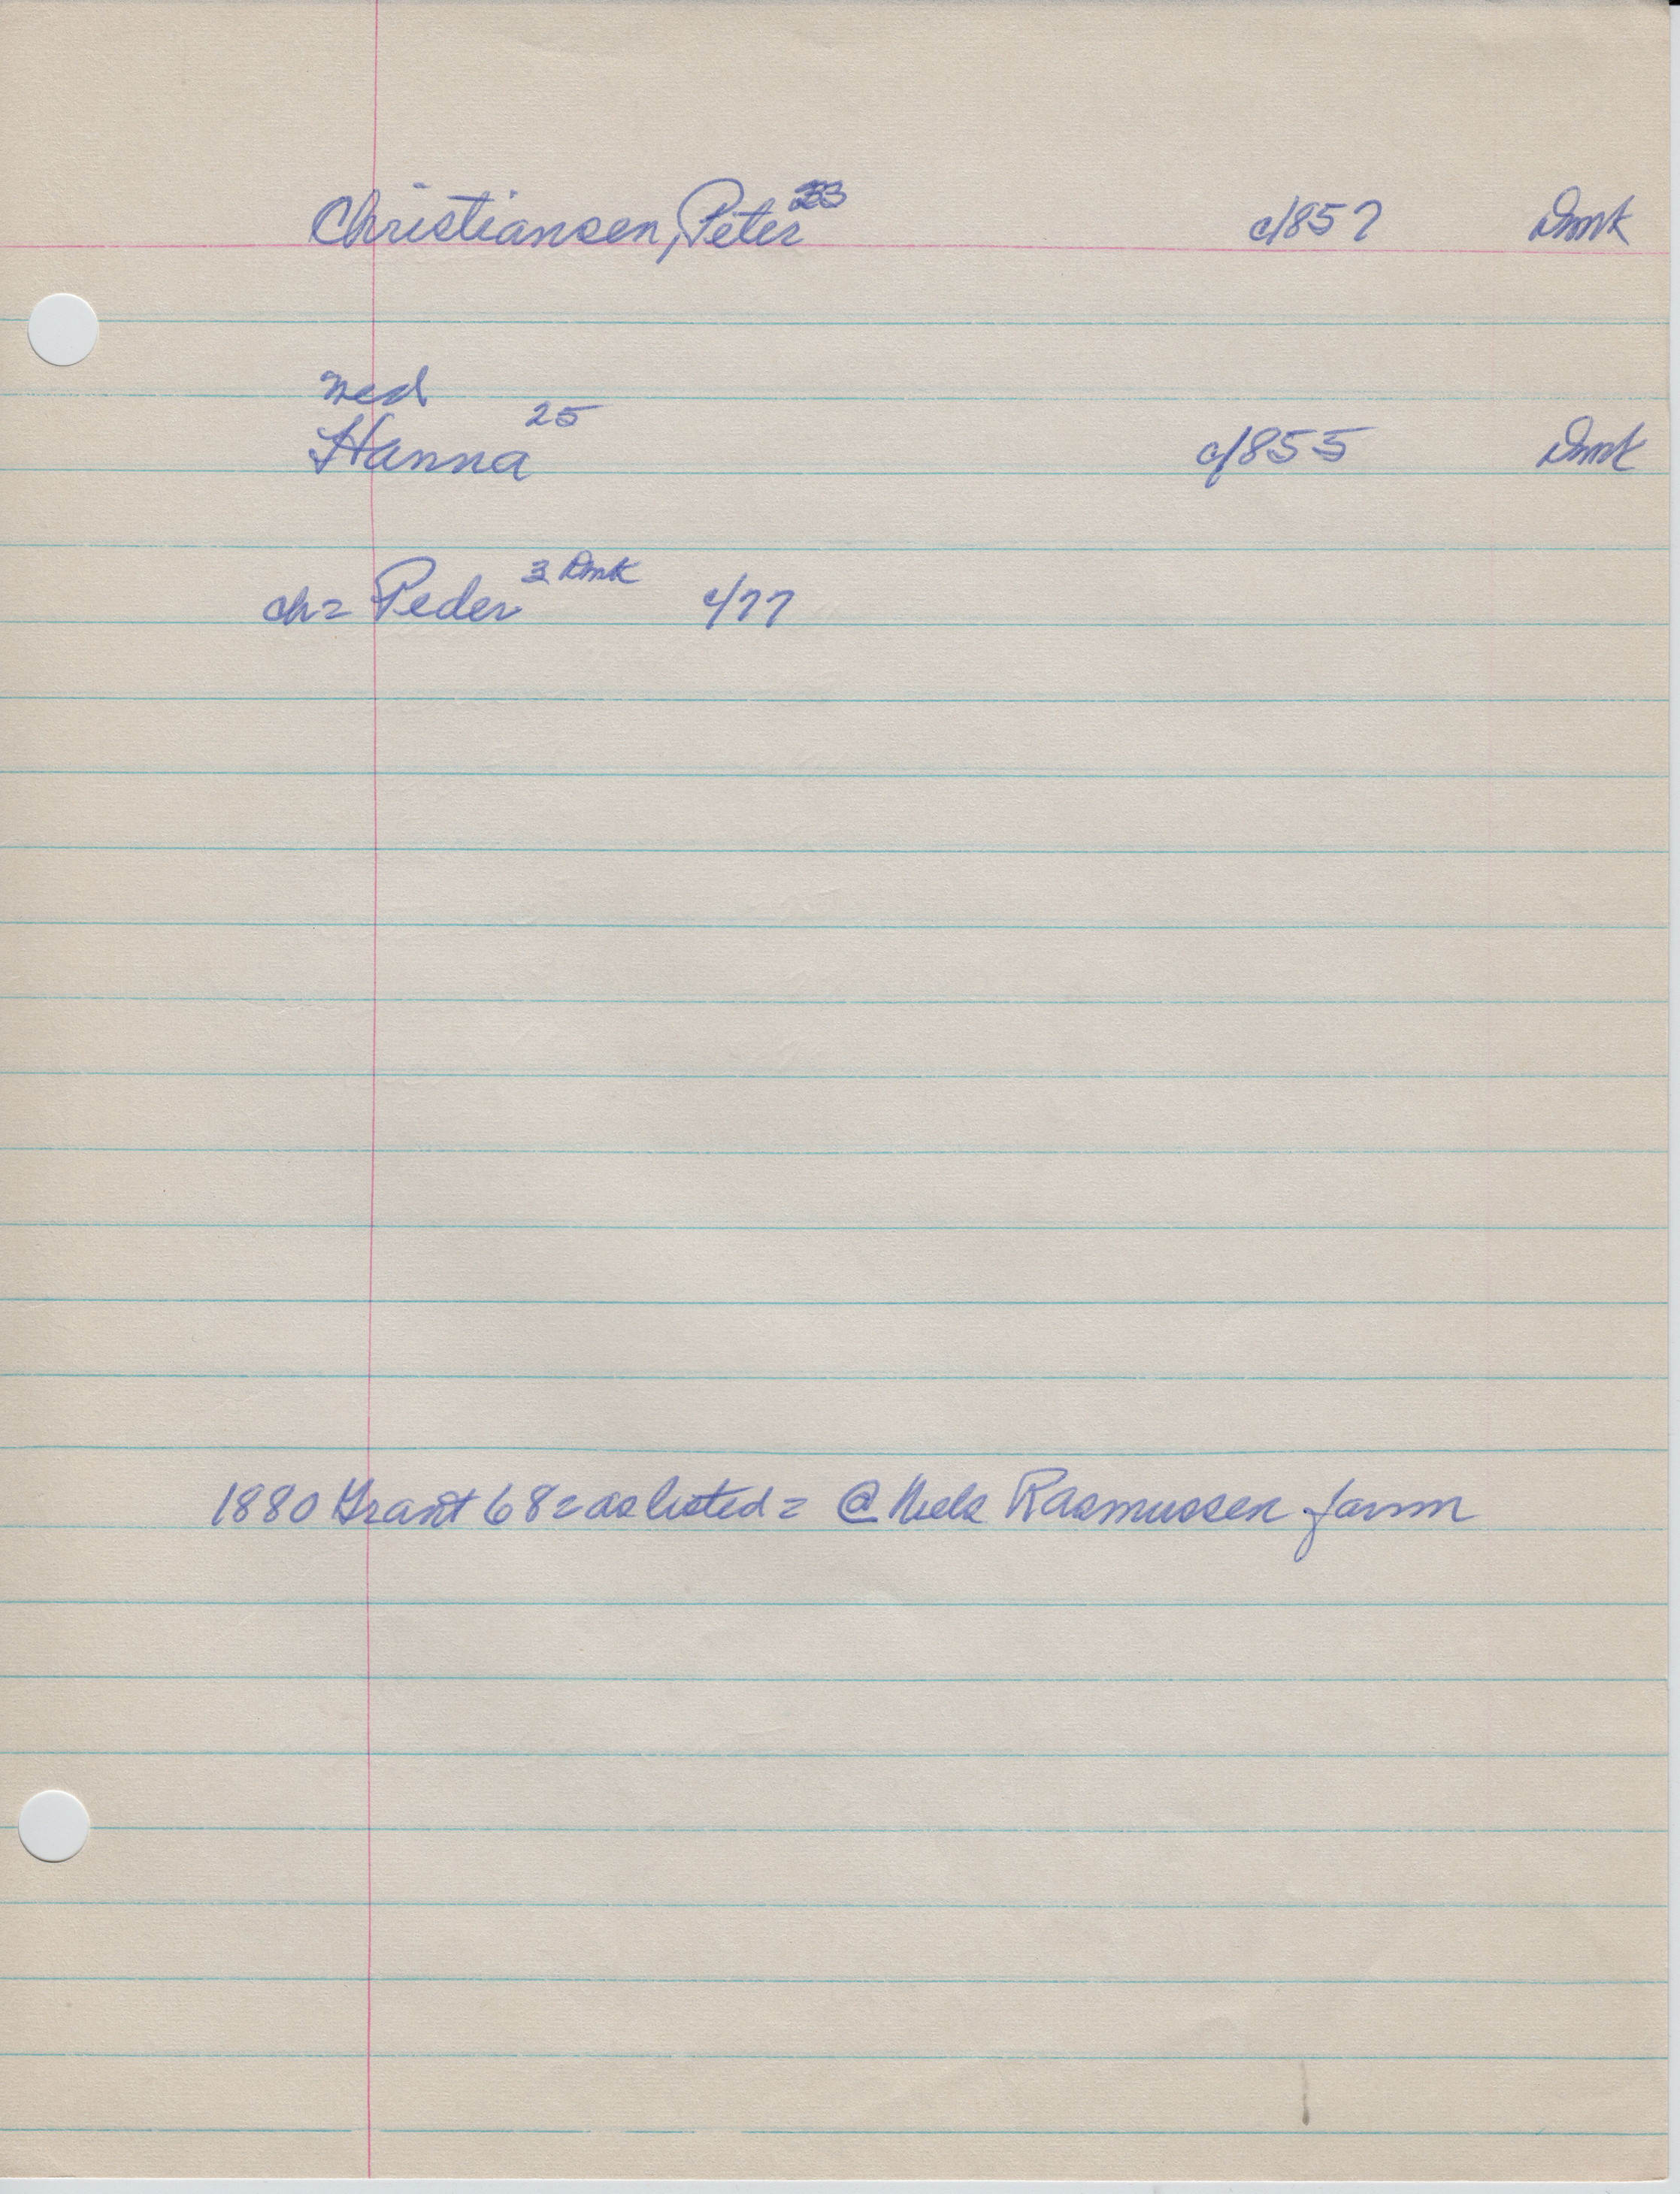 Christiansen, Peter 23 c/857 Dmk
med
Hanna 25 c/855 Dmk
ch= Peder 3 Dmk c/77
1880 Grant 68= as listed = @ Niels Rasmussen farm